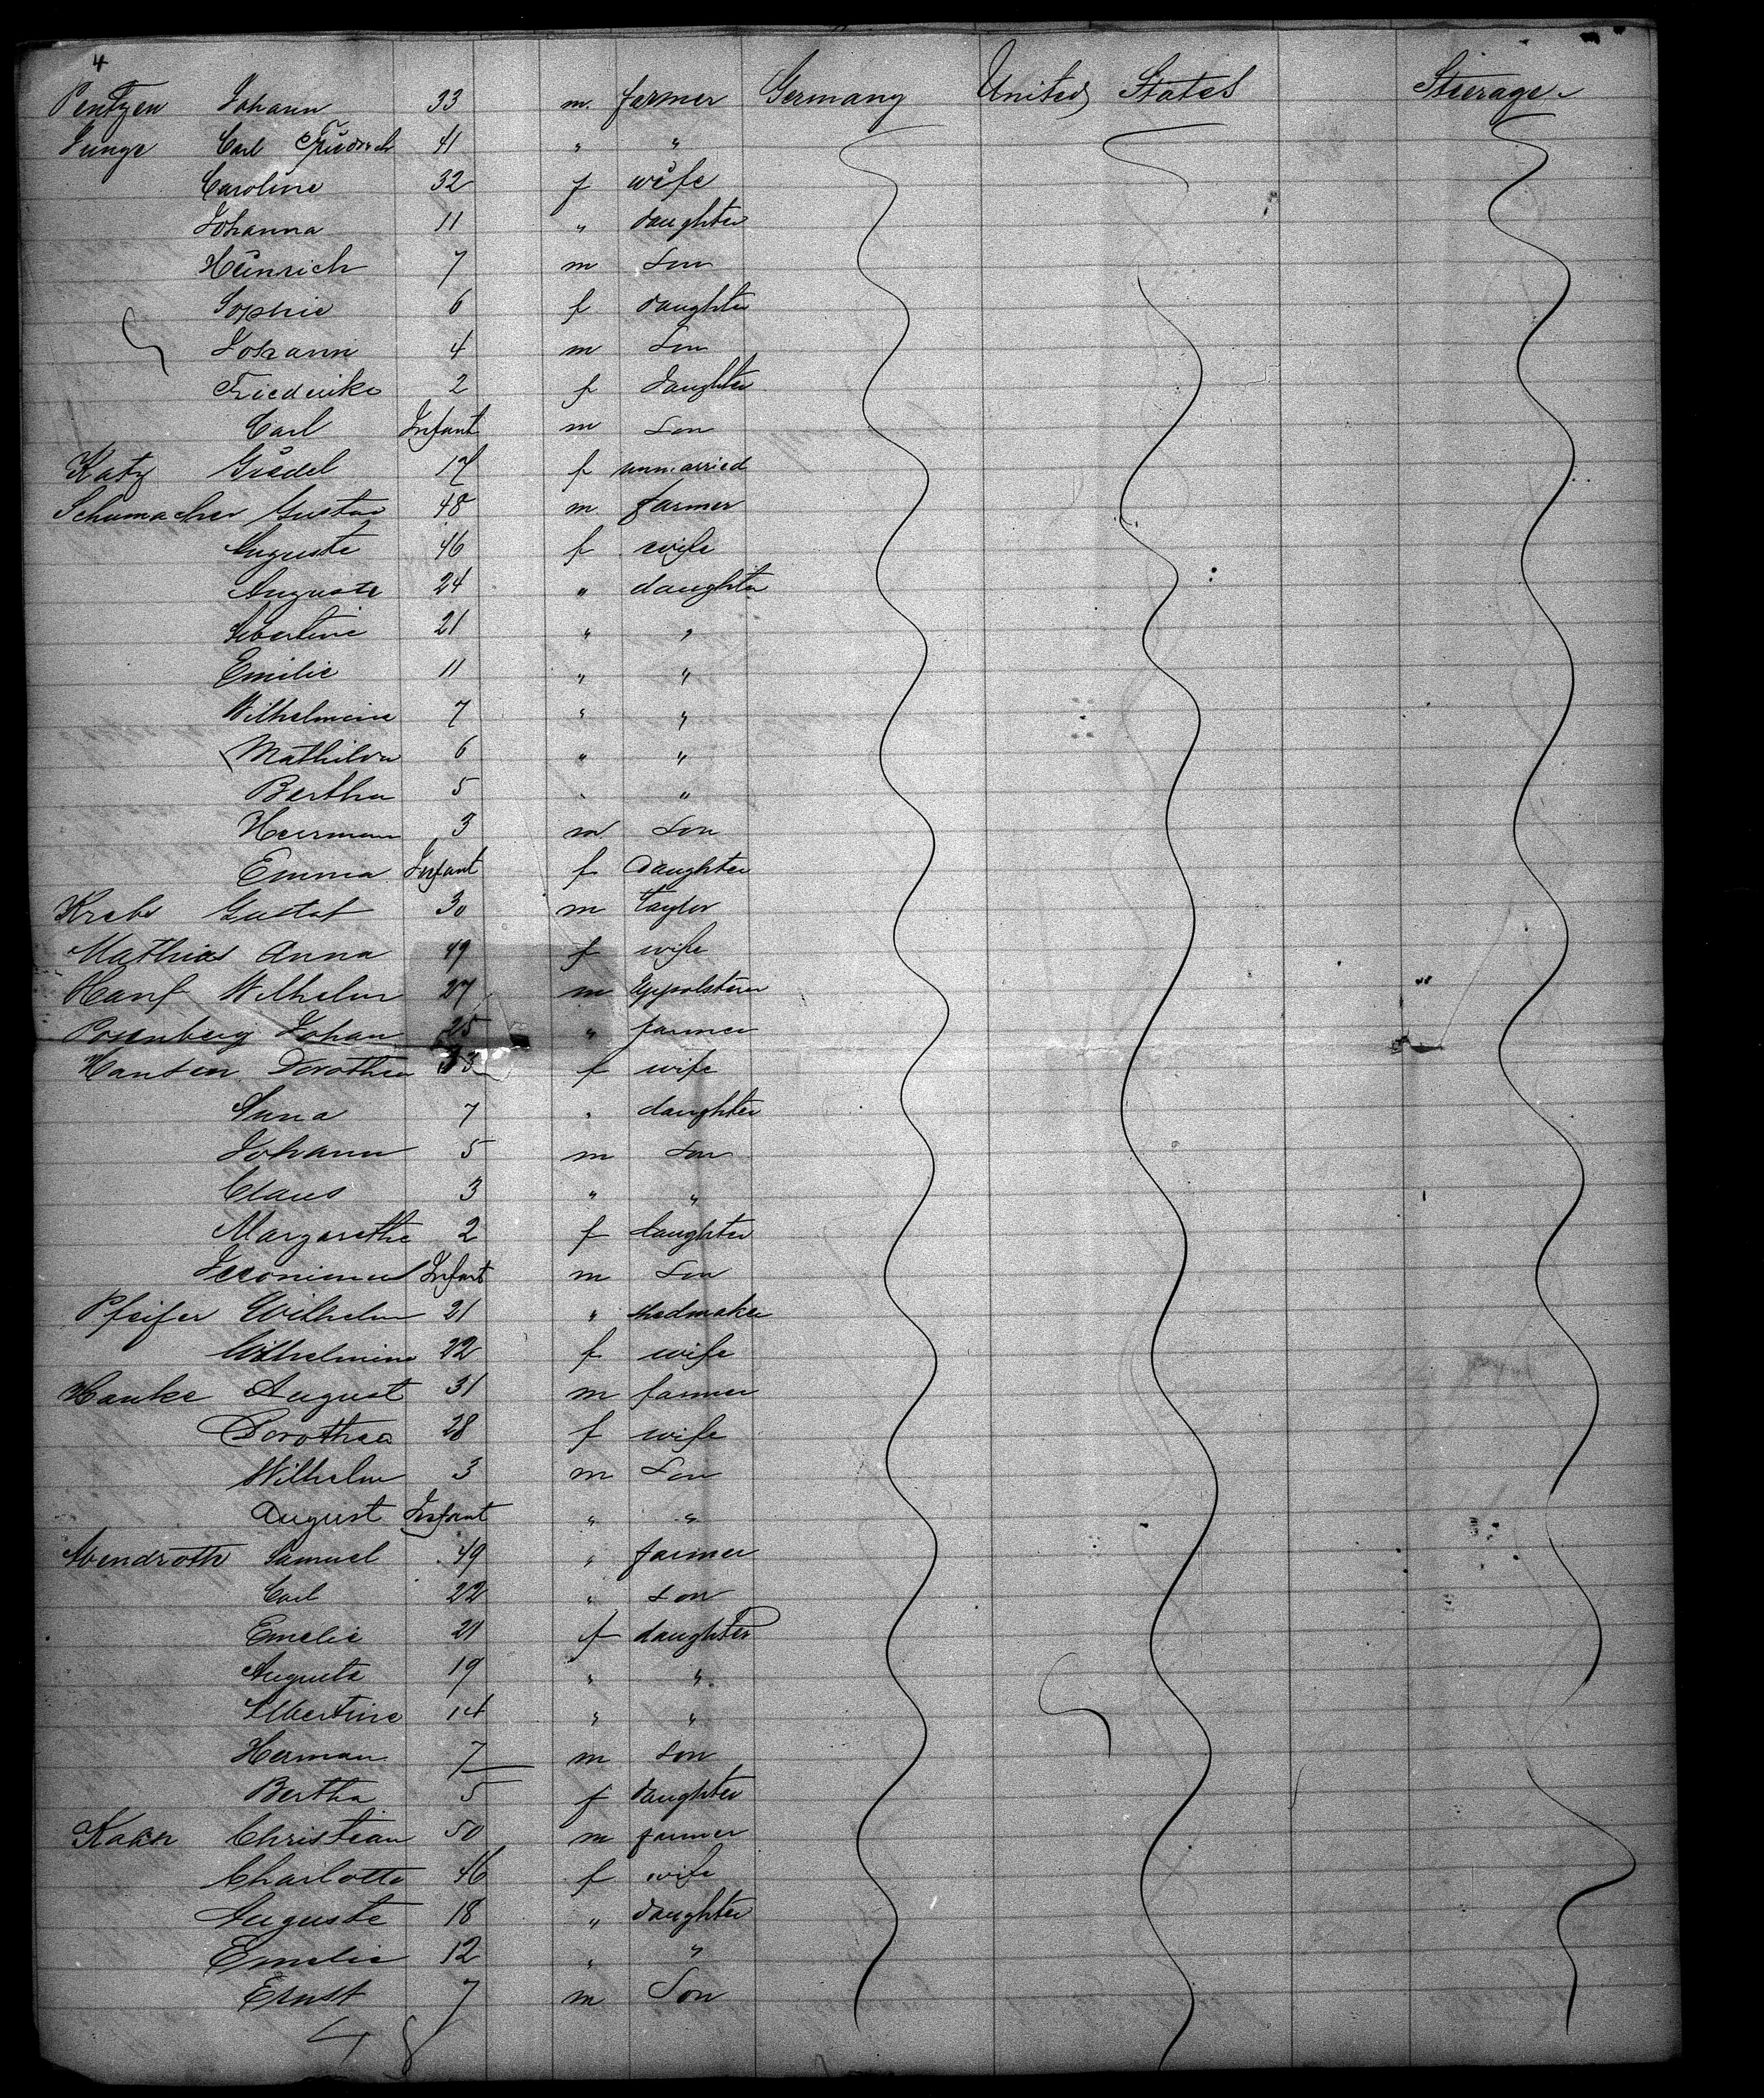 4
Pentzen Johann 33 m. farmer Germany United States Steerage
Junge Carl Friedrich 41 " "
Caroline 32 f wife
Johanna 11 " daughter
Heinrich 7 m Son
Sophie 6 f daughter
Johann 4 m Son
Friederike 2 f daughter
Carl Infant m Son
Katz Giedel 17 f unmarried
Schumacher Gustav 48 m farmer
Auguste 46 f wife
Auguste 24 " daughter
Albertine 21 " "
Emilie 11 " "
Wilhelmine 7 " "
Mathilde 6 " "
Bertha 5 " "
Herrmann 3 m Son
Emma Infant f Daughter
Krebs Gustaf 30 m taylor
Mathias Anna 49 f wife
Hanf Wilhelm 27 m Uppolsterer
Rosenberg Johan 25 " farmer
Hansen Dorothea f wife
Anna 7 " daughter
Johann 5 m Son
Claus 3 " "
Margarethe 2 f daughter
Jeronimus Infant m Son
Pfeifer Wilhelm 21 " shoemaker
Wilhelmine 22 f wife
Hanke August 31 m farmer
Dorothea 28 f wife
Wilhelm 3 m Son
August Infant " "
Abendroth Samuel 49 " farmer
Carl 22 " Son
Emelie 21 f daughter
Augusta 19 " "
Albertine 14 " "
Herman 7 m Son
Bertha 5 f daughter
Kakn Christian 50 m farmer
Charlotte 46 f wife
Auguste 18 " daughter
Emelie 12 " "
Ernst 7 m Son
48